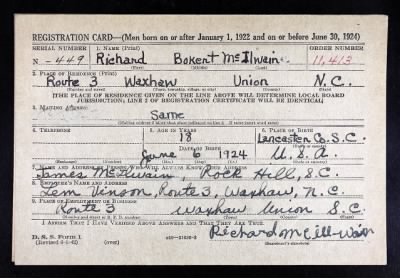 REGISTRATION CARD—(Men born on or after January 1, 1922 and on or before June 30, 1924)
SERIAL NUMBER 1. NAME (Print) ORDER NUMBER
N -449 Richard Bokert McIlwain 11,413
(First) (Middle) (Last)
2. PLACE OF RESIDENCE (Print)
Route 3 Waxhaw Union N.C.
(Number and street) (Town, township, village, or city) (County) (State)
[THE PLACE OF RESIDENCE GIVEN ON THE LINE ABOVE WILL DETERMINE LOCAL BOARD
JURISDICTION; LINE 2 OF REGISTRATION CERTIFICATE WILL BE IDENTICAL]
3. MAILING ADDRESS
Same
4. TELEPHONE 5. AGE IN YEARS 6. PLACE OF BIRTH
18 Lancaster Co. S.C.
DATE OF BIRTH
June 6 1924 U.S.A.
7. NAME AND ADDRESS OF PERSON WHO WILL ALWAYS KNOW YOUR ADDRESS
James McIlwain, Rock Hill, S.C.
8. EMPLOYER'S NAME AND ADDRESS
Lem Vinson, Route 3, Waxhaw, N.C.
9. PLACE OF EMPLOYMENT OR BUSINESS
Route 3 Waxhaw Union S.C.
(Number and street or R. F. D. number) (Town) (County) (State)
I AFFIRM THAT I HAVE VERIFIED ABOVE ANSWERS AND THAT THEY ARE TRUE.
D. S. S. Form 1 Richard McIll-Wain
(Revised 6-1-42) (over) (Registrant's signature)